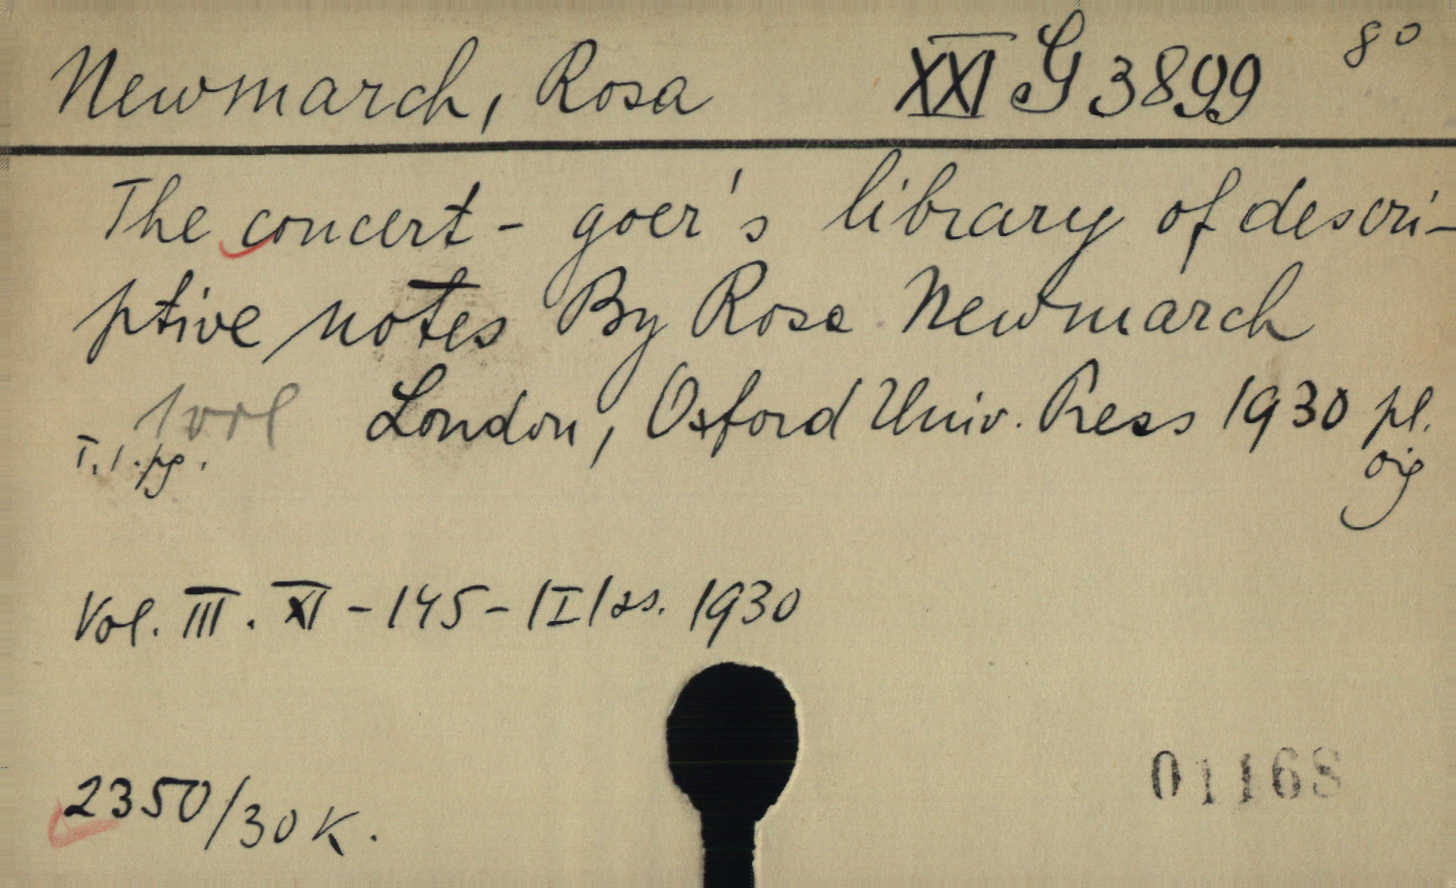 Newmarch, Rosa XXI G 3899 8°
The concert-goer's library of descri-
ptive notes By Rosa Newmarch
London, Oxford Univ. Press 1930 pl.
T. 1. pg.
Vol. III. XI - 145 - |I| as. 1930
2350/30 K.
01168